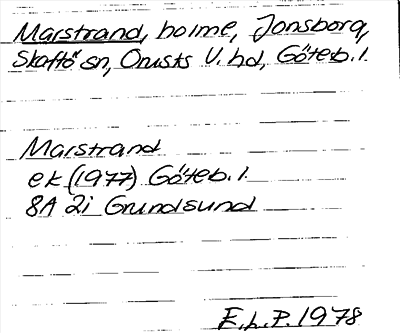 Marstrand, holme, Jonsborg,
Skaftö sn, Orusts V. hd, Göteb. l.
Marstrand
ek (1977) Göteb. l.
8A 2i Grundsund
E.h.P. 1978